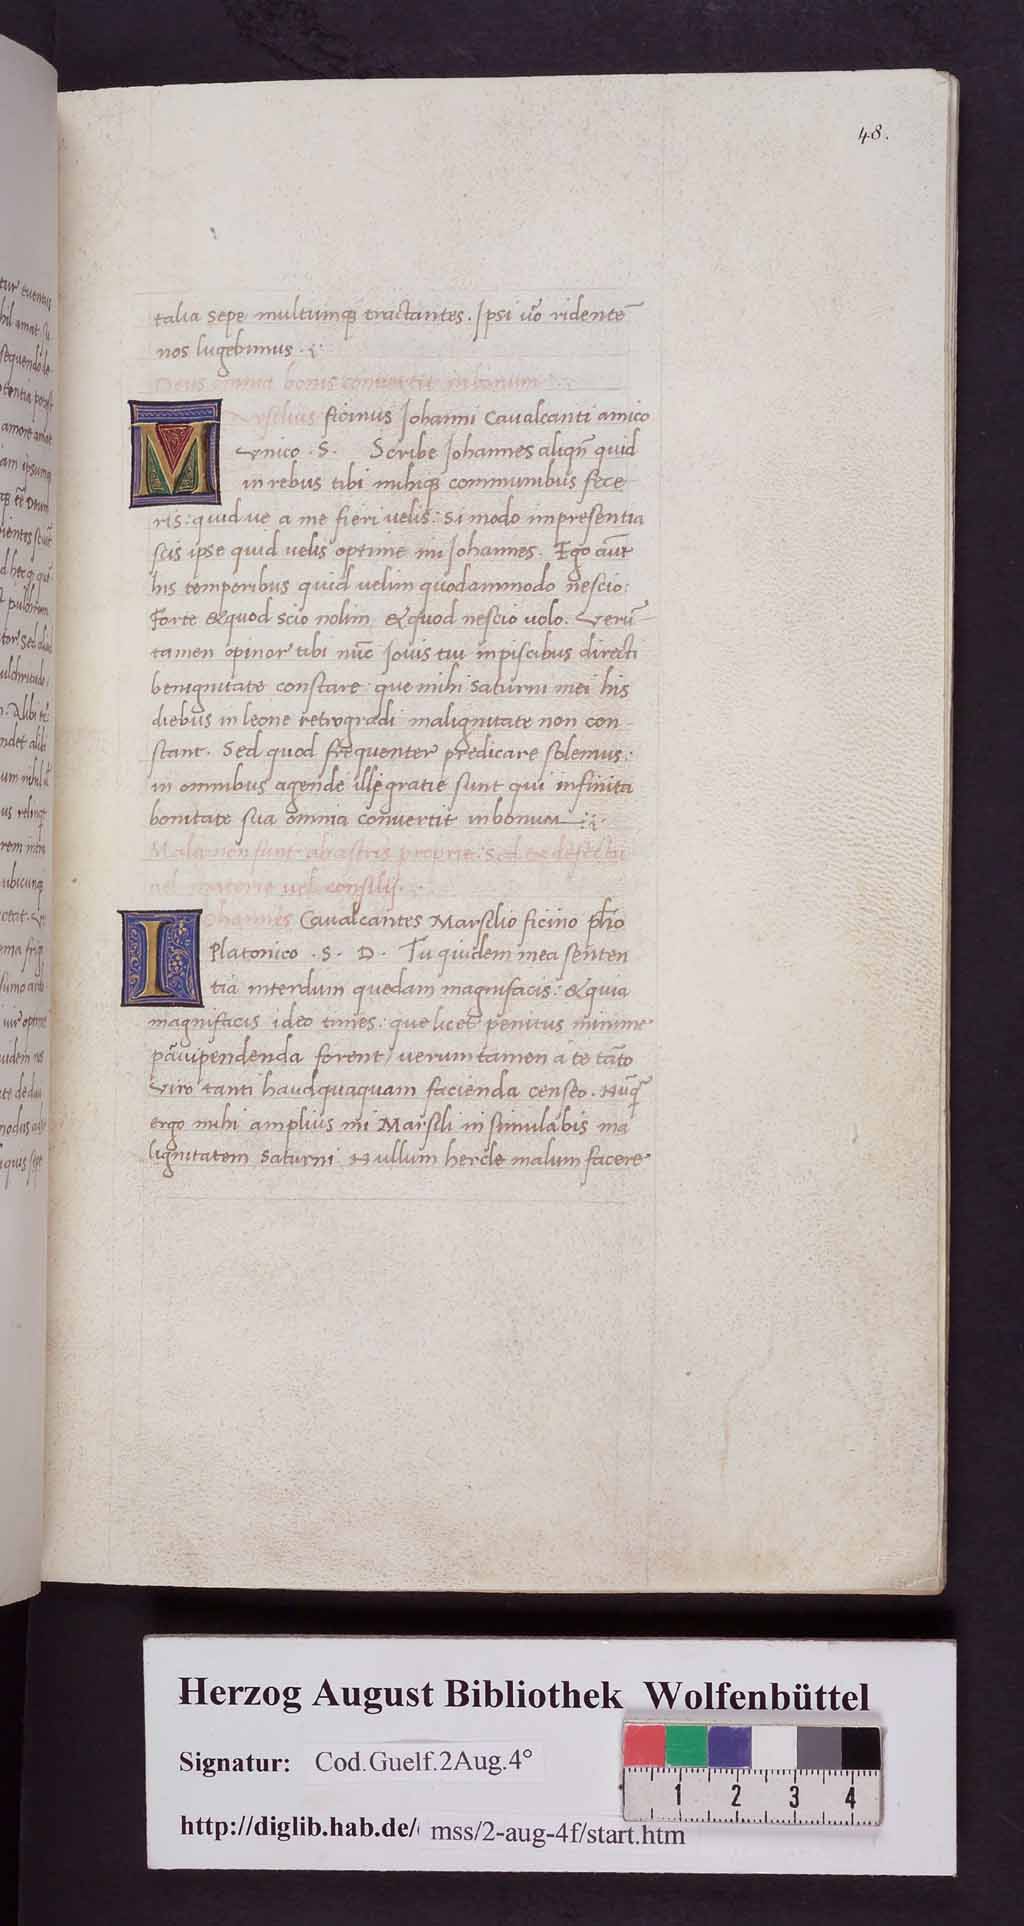 48.
talia sepe multumqꝫ tractantes. Ipsi uo͂ ridente͂
nos lugebimus
Deus omnia bonis convertit in bonum
Marsilius ficinus Johanni Cavalcanti amico
Unico . S. Scribe Johannes aliqn͂ quid
in rebus tibi mihiqꝫ communibus fece
ris: quid ve a me fieri velis: Si modo in presentia
scis ipse quid velis optime mi Johannes. Ego aut͂
his temporibus quid velim quodammodo nescio:
Forte & quod scio nolim & quod nescio uolo. Veru͂
tamen opinor tibi nu͂c Jovis tui in piscibus directi
benignitate constare que mihi Saturni mei his
diebus in leone retrogradi malignitate non con
stant. Sed quod frequenter predicare solemus:
in omnibus agende illi gratie sunt qui infinita
bonitate sua omnia convertit in bonum
Mala non sunt ab astris proprie. Sed ex defectu
uel materie uel consilii.
Iohannes Cavalcantes Marsilio ficino ph͂o
Platonico . S . D . Tu quidem mea senten
tia interdum quedam magnifacis: & quia
magnifacis ideo times: que licet penitus minime
pa͂vipendenda forent, verumtamen a te ta͂to
Viro tanti haudquaquam facienda censeo. Nu͂q͂
ergo mihi amplius mi Marsili insimulabis ma
lignitatem Saturni Nullum hercle malum facere
Herzog August Bibliothek Wolfenbüttel
Signatur: Cod.Guelf.2Aug.4°
http://diglib.hab.de/ mss/2-aug-4f/start.htm
1 2 3 4